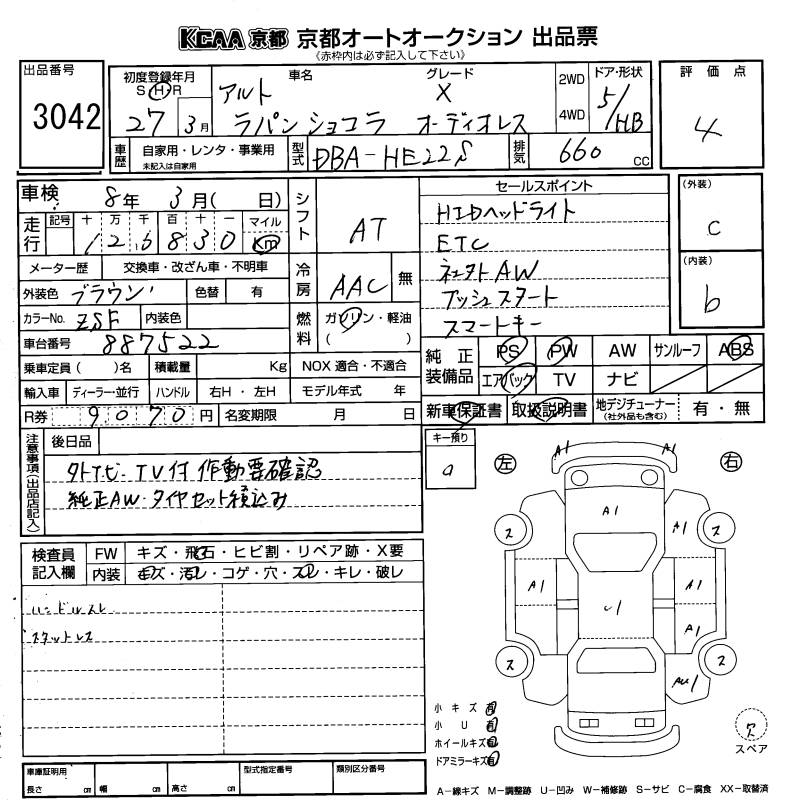 KCAA 京都 京都オートオークション 出品票
《赤枠内は必ず記入して下さい》
出品番号
3042
初度登録年月
S H R
27 3月
車名
グレード
アルト
ラパン ショコラ
X
オーディオレス
2WD
4WD
ドア・形状
5/HB
評価点
4
車歴
自家用・レンタ・事業用
未記入は自家用
型式
DBA-HE22S
排気
660 CC
車検
8年 3月( 日)
走行
記号 十 万 千 百 十 一 マイル
1 2 6 8 3 0 km
メーター歴 交換車・改ざん車・不明車
外装色 ブラウン 色替 有
カラーNo. ZSF 内装色
車台番号 887522
乗車定員( )名 積載量 Kg
輸入車 ディーラー・並行 ハンドル 右H・左H
R券 9070円 名変期限 月 日
シフト
AT
冷房
AAC 無
燃料
ガソリン・軽油
( )
NOX 適合・不適合
モデル年式 年
セールスポイント
HIDヘッドライト
ETC
社外AW
プッシュスタート
スマートキー
(外装)
C
(内装)
b
純正装備品
PS PW AW サンルーフ ABS
エアバック TV ナビ
新車保証書 取扱説明書 地デジチューナー(社外品も含む) 有・無
注意事項(出品店記入)
後日品
外ナビ-TV付 作動要確認
純正AW・タイヤセット積込み
キー預り
a
検査員記入欄
FW キズ・飛石・ヒビ割・リペア跡・X要
内装 キズ・汚レ・コゲ・穴・スレ・キレ・破レ
ハンドルスレ
スタットレス
左
右
A1
A1
A1
A1
ス
ス
A1
A1
A1
U1
ス
ス
AU1
小キズ 有
小U 有
ホイールキズ 有
ドアミラーキズ 有
スペア
車庫証明用
長さ cm 幅 cm 高さ cm
型式指定番号
類別区分番号
A−線キズ M−調整跡 U−凹み W−補修跡 S−サビ C−腐食 XX−取替済